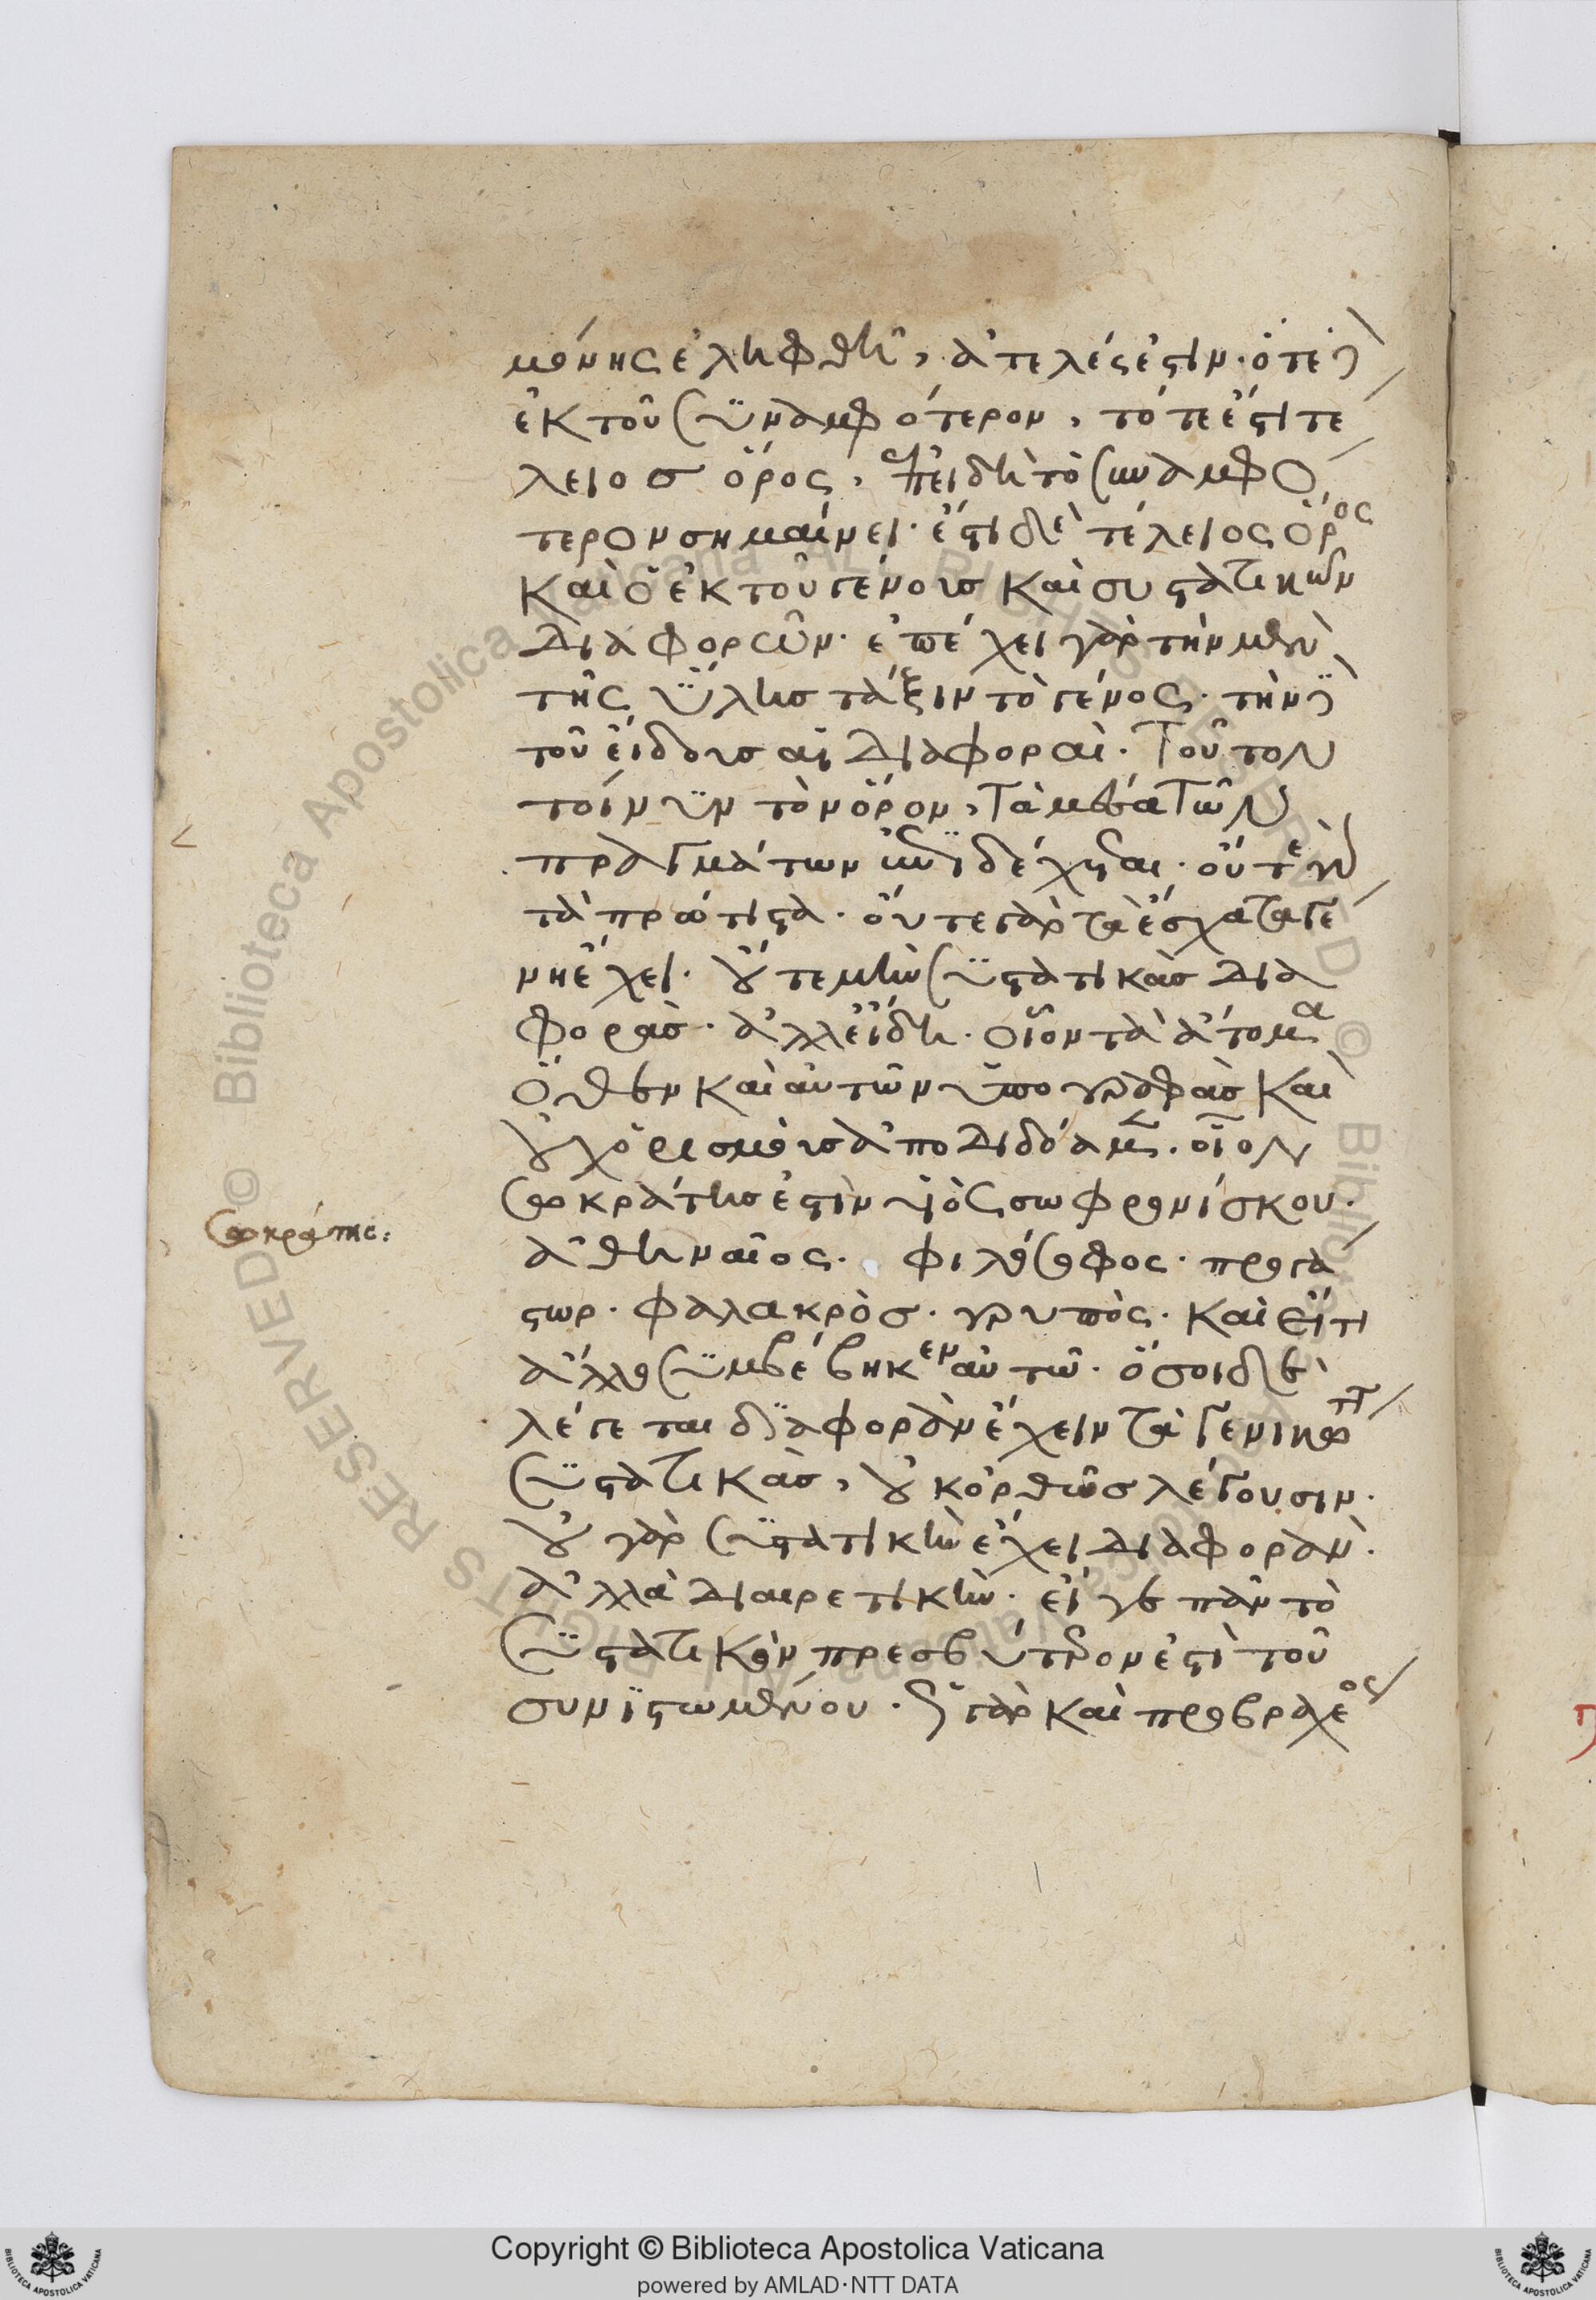 μόνης ἐλήφθη, ἀτελές ἐστιν· ὅτε δὲ
ἐκ τοῦ συναμφότερον, τότε ἐστὶ τέ
λειος ὅρος, ἐπειδὴ τὸ συναμφό
τερον σημαίνει· ἔστι δὲ τέλειος ὅρος
καὶ ὁ ἐκ τοῦ γένους καὶ συστατικῶν
διαφορῶν· ἐπέχει γὰρ τὴν μὲν
τῆς ὕλης τάξιν τὸ γένος· τὴν δὲ
τοῦ εἴδους αἱ διαφοραί· Τοῦτον
τοίνυν τὸν ὅρον, τὰ μέσα τῶν
πραγμάτων ἐπιδέχεται· οὔτε γὰρ
τὰ πρώτιστα· οὔτε γὰρ τὰ ἔσχατα γέ
νη ἔχει· οὔτε μὴν συστατικὰς δια
φοράς· ἀλλ' εἴδη· οἷον τὰ ἄτομα
ὅθεν καὶ αὐτῶν ὑπογραφὰς καὶ
οὐχ ὁρισμοὺς ἀποδιδόαμεν· οἷον
σωκράτης ἐστὶν υἱὸς σωφρονίσκου·
ἀθηναῖος· φιλόσοφος· προγά
στωρ· φαλακρὸς· γρυπὸς· καὶ εἴ τι
ἄλλο συμβέβηκεν αὐτῶ· ὅσοι δὲ
λέγεται διαφορὰν ἔχειν τὰ γενικώτατα
συστατικὰς, οὐκ ὀρθῶς λέγουσιν·
οὐ γὰρ συστατικὴν ἔχει διαφορὰν·
ἀλλὰ διαιρετικὴν· εἴ γε πᾶν τὸ
συστατικὸν πρεσβύτερον ἐστὶ τοῦ
συνιστωμένου· ὡς γὰρ καὶ προβραχέος
σωκράτης:
Copyright © Biblioteca Apostolica Vaticana
powered by AMLAD·NTT DATA